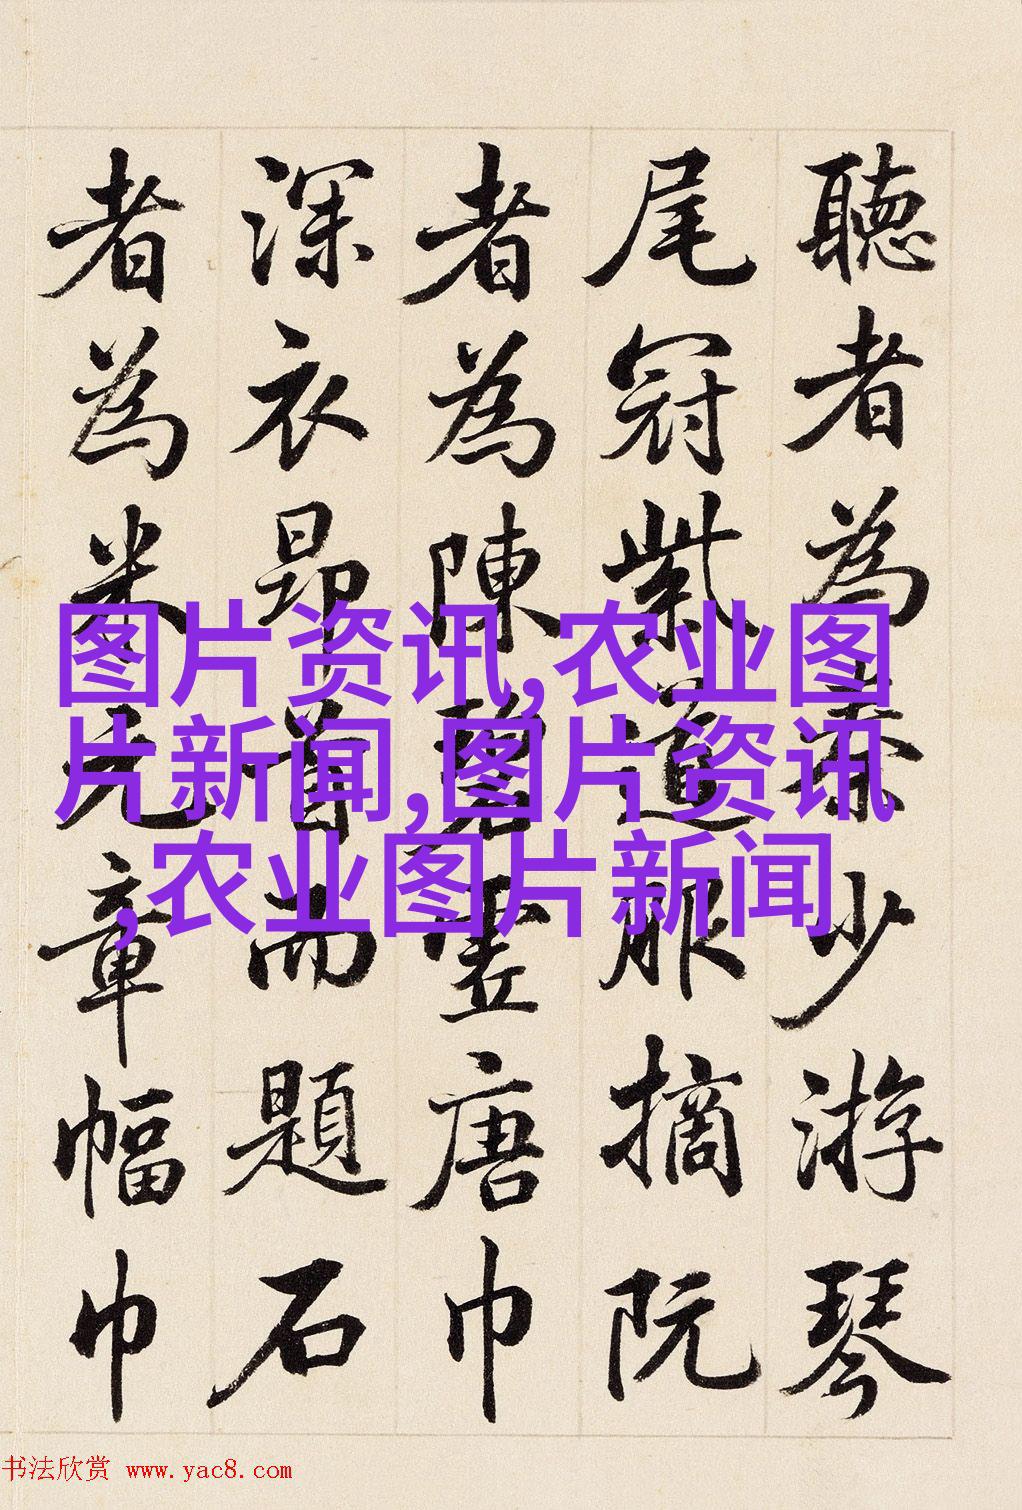 聽者為秦少游琴
尾冠紫道服摘阮
者為陳碧虛唐巾
深衣昂首而題石
者為米元章幅巾
图片资讯,农业图
片新闻,图片资讯
,农业图片新闻
书法欣赏 www.yac8.com